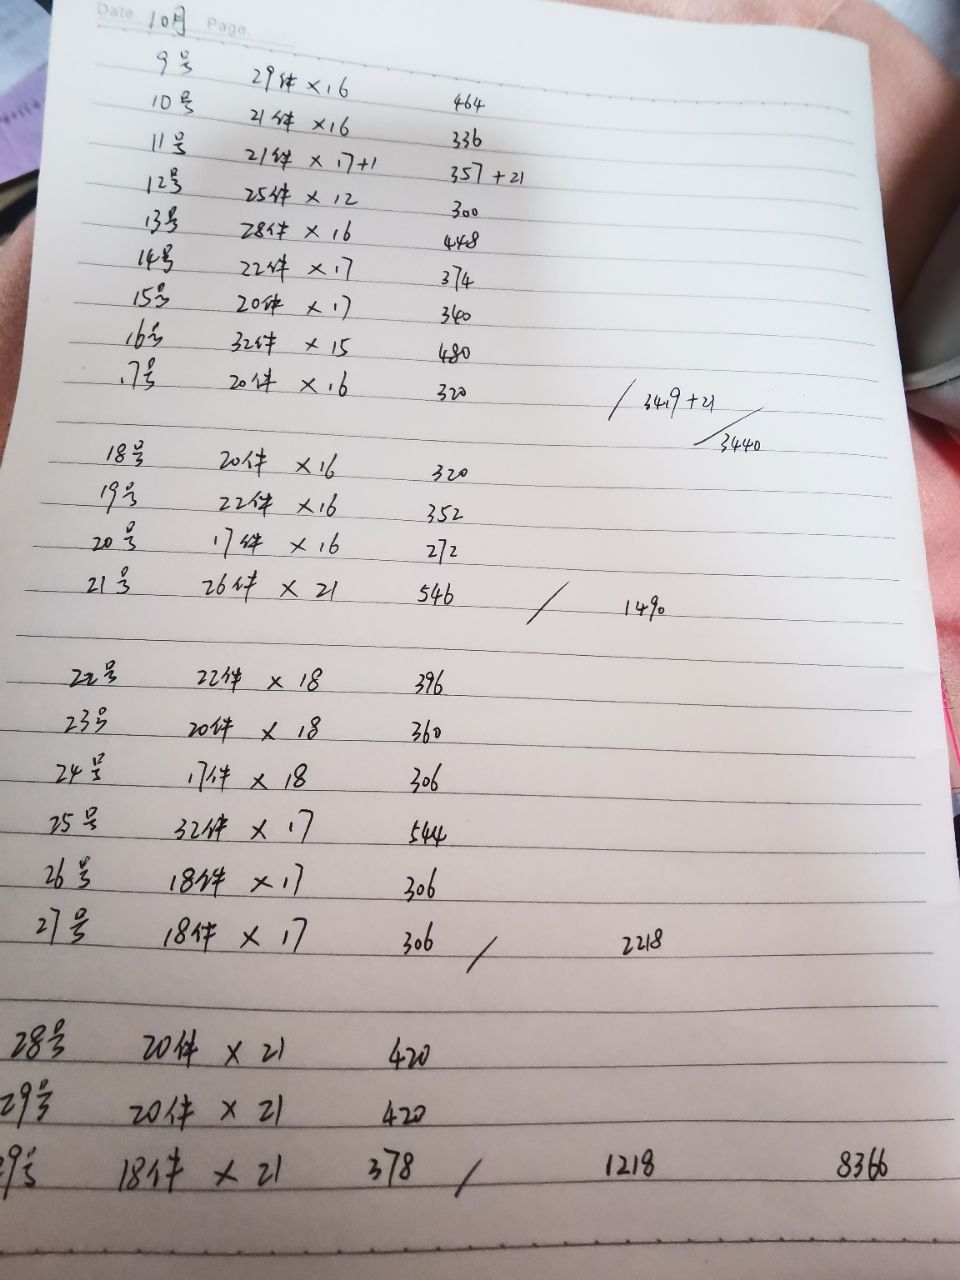 Date 10月 Page.
9号 29件 ×16 464
10号 21件 ×16 336
11号 21件 × 17+1 357 +21
12号 25件 × 12 300
13号 28件 × 16 448
14号 22件 × 17 374
15号 20件 × 17 340
16号 32件 × 15 480
17号 20件 × 16 320 / 3419 +21
/ 3440
18号 20件 ×16 320
19号 22件 ×16 352
20号 17件 ×16 272
21号 26件 × 21 546 / 1490
22号 22件 × 18 396
23号 20件 × 18 360
24号 17件 × 18 306
25号 32件 × 17 544
26号 18件 × 17 306
27号 18件 × 17 306 / 2218
28号 20件 × 21 420
29号 20件 × 21 420
29号 18件 × 21 378 / 1218 8366